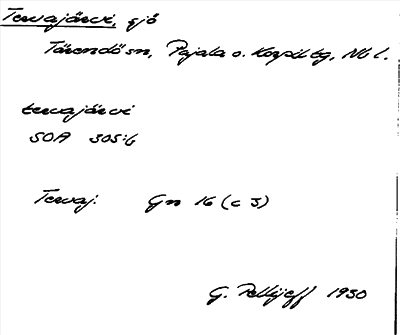 Tervajärvi, sjö
Tärendö sn, Pajala o. Korpil. tg, Nb l.
tervajärvi
SOA 305:6
Tervaj. Gn 16 (c 3)
G. Pellijeff 1930